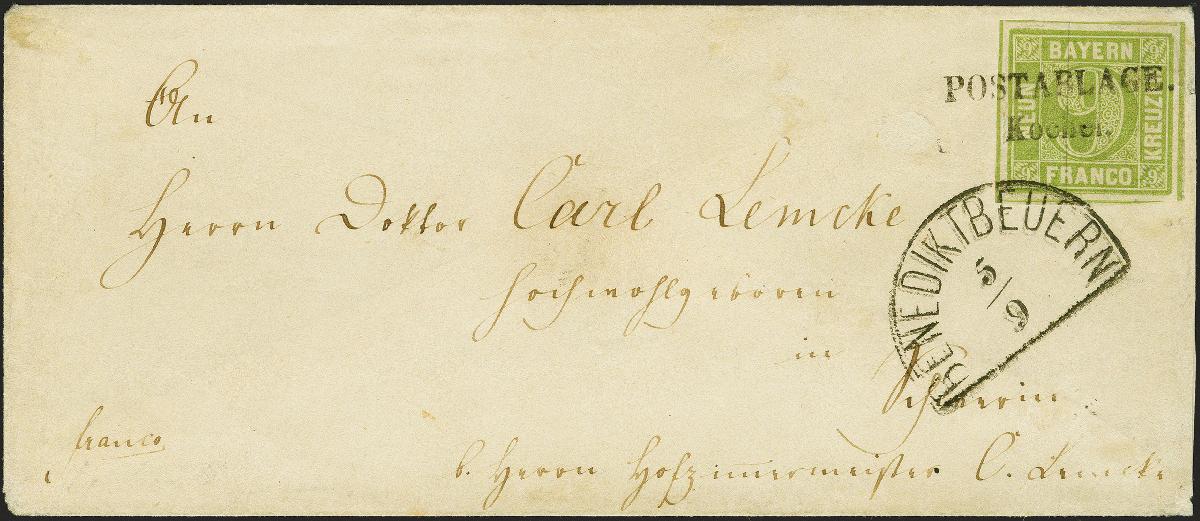 BAYERN
NEUN
9
KREUZER
FRANCO
POSTABLAGE.
Kochel.
An
Herrn Doktor Carl Lemcke
Hochwohlgeboren
in
Schwerin
BENEDIKTBEUERN
5/9
franco
b. Herrn Hofzimmermeister C. Lemcke